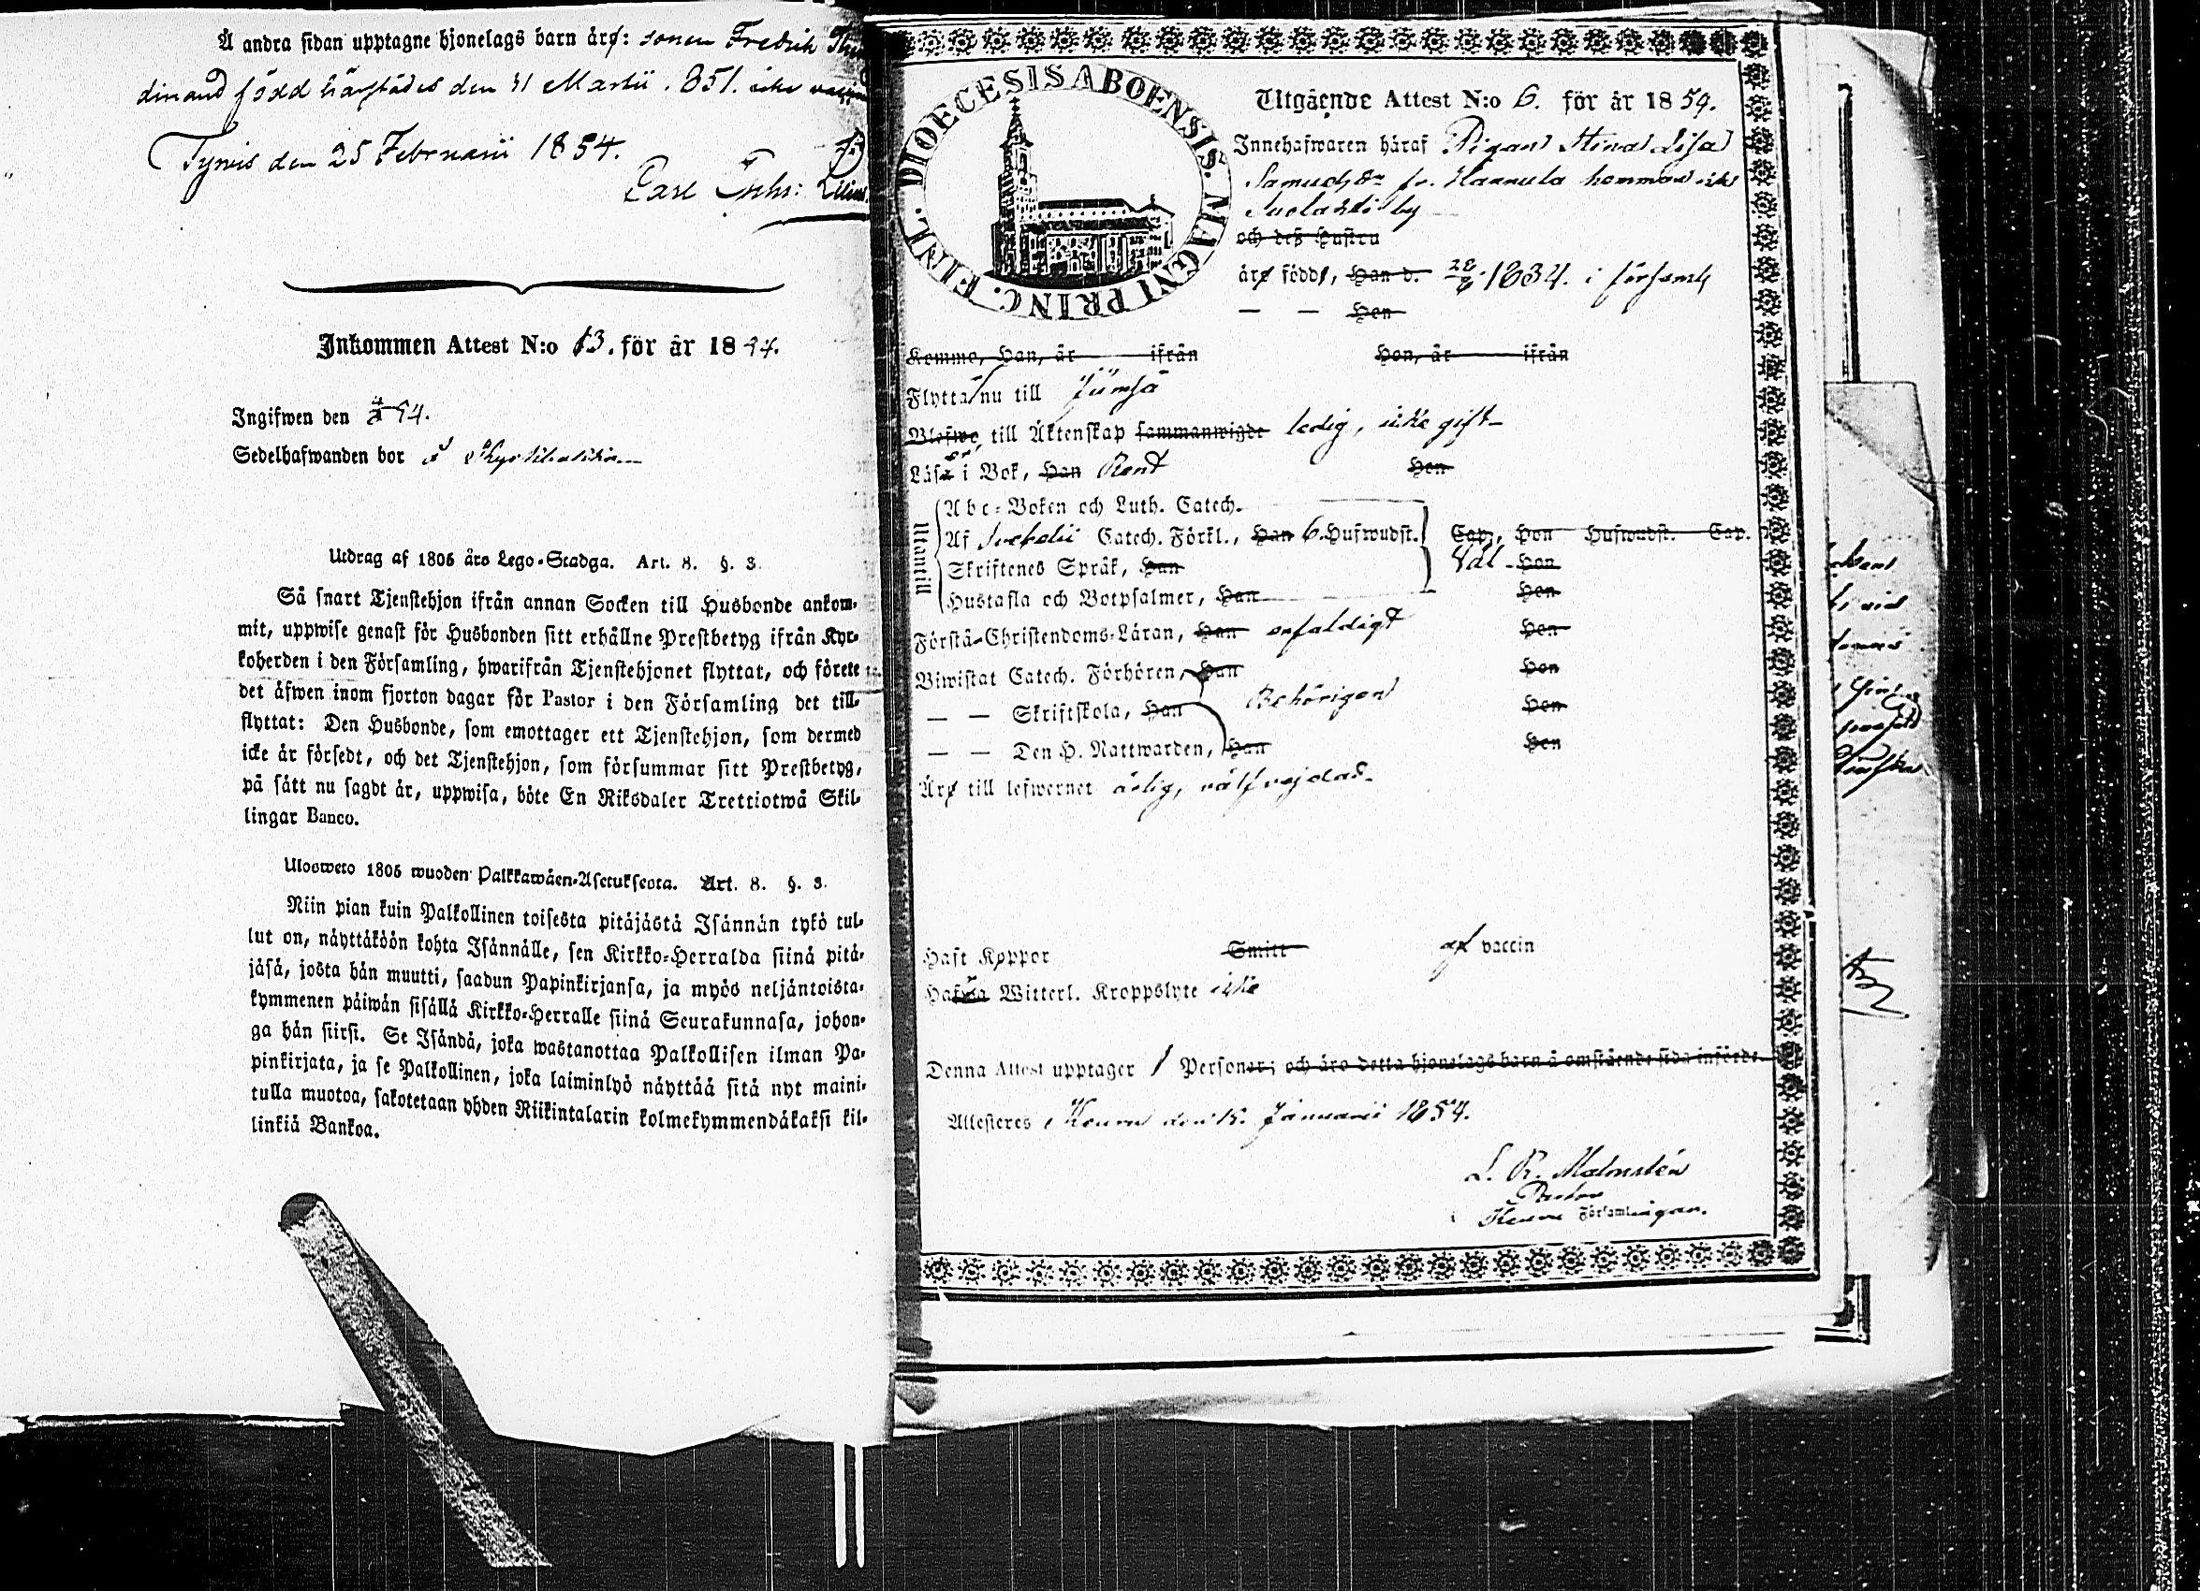 Å andra sidan upptagne hjonelags barn äro: sonen Fredrik
dinand född härstädes den 21 Martii 1851. icke
Tyrvis den 25 Februarii 1854.
Carl
Inkommen Attest N:o 13. för år 1854.
Ingifwen den 54.
Sedelhafwanden bor i
Utdrag af 1805 års Lego-Stadga. Art. 8. §. 3.
Så snart Tjenstehjon ifrån annan Socken till Husbonde ankom-
mit, uppwise genast för Husbonden sitt erhållne Prestbetyg ifrån Kyr-
koherden i den Församling, hwarifrån Tjenstehjonet flyttat, och förete
det äfwen inom fjorton dagar för Pastor i den Församling det till-
flyttat: Den Husbonde, som emottager ett Tjenstehjon, som dermed
icke är försedt, och det Tjenstehjon, som försummar sitt Prestbetyg,
på sätt nu sagdt är, uppwisa, böte En Riksdaler Trettiotwå Skil-
lingar Banco.
Ulosweto 1805 wuoden Palkkawäen-Asetuksesta. Art. 8. §. 3.
Niin pian kuin Palkollinen toisesta pitäjästä Isännän tykö tul-
lut on, näyttäköön kohta Isännälle, sen Kirkko-Herralda siinä pitä-
jäsä, josta hän muutti, saadun Papinkirjansa, ja myös neljäntoista-
kymmenen päiwän sisällä Kirkko-Herralle siinä Seurakunnasa, johon-
ga hän siirsi. Se Isändä, joka wastanottaa Palkollisen ilman Pa-
pinkirjata, ja se Palkollinen, joka laiminlyö näyttää sitä nyt maini-
tulla muotoa, sakotetaan yhden Riikintalarin kolmekymmendäkaksi kil-
linkiä Bankoa.
DIOECESIS ABOENSIS. MAGNI PRINC. FINL.
Utgående Attest N:o 6. för år 1854.
Innehafwaren häraf Pigan Stina Lisa
Samuelsdr fr. Hannula hemman
Suolahti by
och deß Hustru
äro födde, Han d. 1834. i församl
— — Hon
Kommo, Han, år ifrån Hon, år ifrån
Flytta nu till Jämsä
Blefwo till Äktenskap sammanwigde ledig, icke gift
Läsa i Bok, Han Rent Hon
Utantill
Abc-Boken och Luth. Catech.
Af Svebelii Catech. Förkl., Han 6. Hufwudst. Cap., Hon Hufwudst. Cap.
Skriftenes Språk, Han Väl Hon
Hustafla och Botpsalmer, Han Hon
Förstå Christendoms-Läran, Han enfaldigt Hon
Biwistat Catech. Förhören, Han Hon
— — Skriftskola, Han Behörigen Hon
— — Den H. Nattwarden, Han Hon
Äro till lefwernet ärlig, välfrejdad
Haft Koppor Smitt af vaccin
Hafwa Witterl. Kroppslyte icke
Denna Attest upptager 1 Personer; och äro detta hjonelags barn å omstående sida införde.
Attesteres Keuru den 15. Januarii 1854.
L. R. Malmstén
Pastor
Keuru Församlingen.